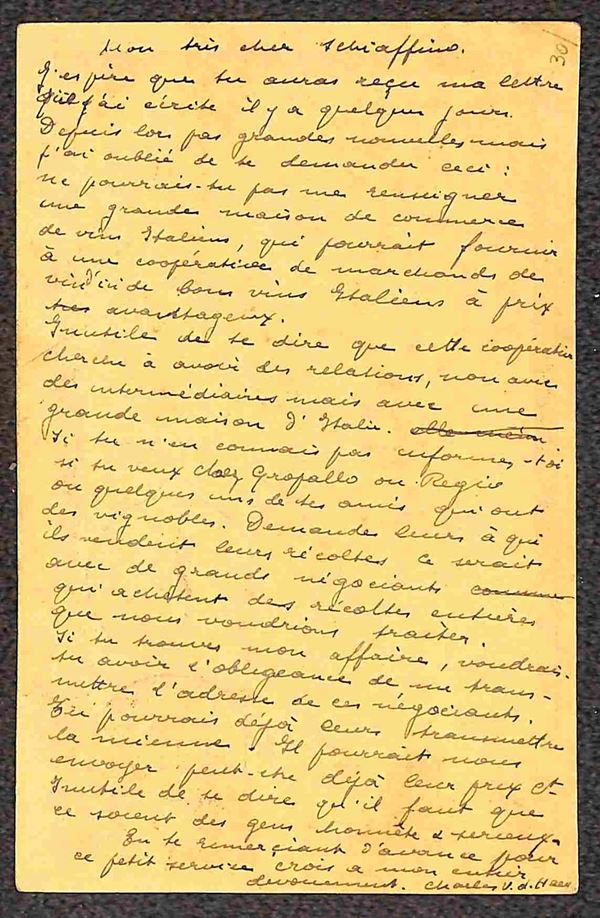 30
Mon très cher Schiaffino.
J'espère que tu auras reçu ma lettre
que j'ai écrite il y a quelques jours.
Depuis lors pas grandes nouvelles mais
j'ai oublié de te demander ceci :
ne pourrais-tu pas me renseigner
une grande maison de commerce
de vins Italiens, qui pourrait fournir
à une coopérative de marchands de
vin d'ici de bons vins Italiens à prix
très avantageux.
Inutile de te dire que cette coopérative
cherche à avoir des relations, non avec
des intermédiaires mais avec une
grande maison d'Italie.
Si tu n'en connais pas informes-toi
si tu veux chez Gropallo ou Regio
ou quelques uns de tes amis qui ont
des vignobles. Demande leurs à qui
ils vendent leurs récoltes ce serait
avec de grands négociants
qui achètent des récoltes entières
que nous voudrions traiter.
Si tu trouves mon affaire, voudrais-
tu avoir l'obligeance de me trans-
mettre l'adresse de ces négociants.
Tu pourrais déjà leurs transmettre
la mienne. Il pourrait nous
envoyer peut-être déjà leur prix Ct
Inutile de te dire qu'il faut que
ce soient des gens honnête & serieux.
En te remerciant d'avance pour
ce petit service, crois a mon entier
devouement. Charles V. d. Haen